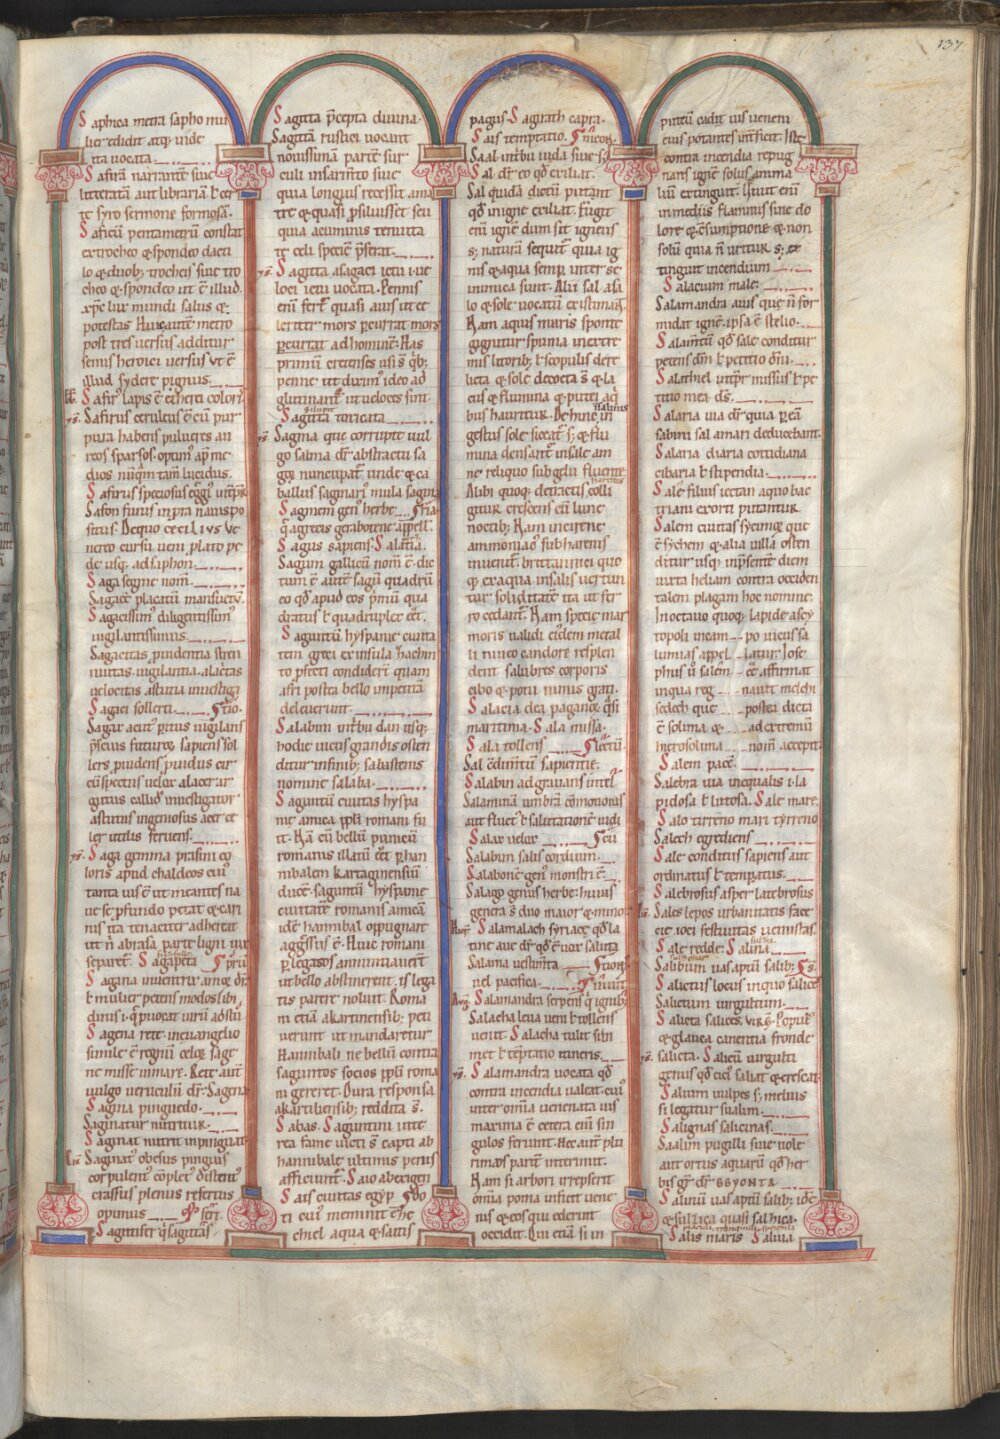 137
Saphica metra sapho mu
lier edidit atq; unde
ita uocata
Safira narrante siue
litterata aut libraria
te syro sermone formosa.
Saficu pentametru constat
extrocheo & spondeo dacti
lo & duob; trocheis siue tro
cheo & spondeo ut e illud.
xpe lux mundi salus &
potestas Huic autem metro
post tres uersus additur
semis heroici uersus ut e
illud sydere pignus.
Safir lapis e etherei coloris
Safirus ceruleus e cu pur
pura habens pulueres au
reos sparsos. optimi ap me
dios nunqm tam lucidus.
Safirus speciosus
Safon funis in pra nauis po
situs. De quo cecilius Ve
nereo cursu ueni plato pe
de usq; ad siphon.
Saga segne nom.
Sagace placatu mansuetu.
Sagacissimi diligentissimi
uigilantissimus
Sagacitas prudentia stren
nuitas. uigilantia. alacritas
uelocitas astutia inuestiga
Sagaci sollerti.
Sagax acut peritus uigilans
prescius futuror sapiens sol
lers prudens prouidus cir
cuspectus uelox alacer ar
gutus callid inuestigator
astutus ingeniosus acer ce
ler utilis feruens.
Saga gemma prasini co
loris apud chaldeos cui
tanta uis e ut meantes na
ue se profundo petat & cari
nis ita tenaciter adhereat
ut n abrasa parte ligni uix
separet. Sagapeta
Sagana inuentrix
t mulier petens modos libi
dinis i. q prouocat uiru ad stu
Sagena rete. in euuangelio
simile e regnu celor sage
ne misse in mare. Rete aut
uulgo uerriculu dr. Sagena
Sagina pinguedo.
Saginatur nutritur.
Saginat nutrit inpinguat
Saginat obesus pinguis
corpulent coplet distent
crassus plenus refertus
opimus
Sagittifer qi sagittas
Sagitta pcepta diuina.
Sagitta rustici uocant
nouissima parte sur
culi insarmto siue
quia longius recessit a ma
tre & quasi psiluisset seu
quia acuminis tenuita
te teli specie pferat.
Sagitta a sagaci ictu i. ue
loci ictu uocata. Pennis
eni fert quasi auis ut ce
leriter mors pcurrat mors
pcurrat ad homine. Has
primu cretenses usi s qb;
penne ut dixim ideo ad
glutinant ut ueloces sint
Sagitta toricata
Sagma que corrupte uul
go salma dr. ab stractu sa
gor nuncupat. unde & ca
ballus sagmari mula sagma
Sagmen gen herbe
q a grecis getabotene appell.
Sagus sapiens. Salatia.
Sagum gallicu nom e. dic
tum e aute sagu quadru
eo qd apud eos primu qua
dratus t quadruplex eet.
Saguntu hyspanie ciuita
tem greci ex insula hacin
to pfecti condidert quam
afri postea bello impetita
deleuerunt.
Salabim intbu dan usq;
hodie uicus grandis osten
ditur in finib; sabastenis
nomine salaba.
Saguntu ciuitas hyspa
nie amica ppli romani fu
it. Ha eni bellu punicu
romanis illatu eet p han
nibalem kartaginensiu
duce. saguntu hyspanie
ciuitate romanis amica
ide hannibal oppugnare
aggressus e. Huic romani
p legatos annuntiauert
ut bello abstinerent. is lega
tis parere noluit. Roma
ni etia akartinensib; peti
uerunt ut mandaretur
Hannibali ne bellu contra
saguntos socios ppli roma
ni gereret. Dura responsa
akartibensib; reddita s.
Sabas. Saguntini inte
rea fame uicti s. capti ab
hannibale ultimis penis
afficiunt. Sauo aberigen
Sais ciuitas egyp
ti cui meminit eze
chiel aqua & satis
pagus. Sagirath capra.
Sais temptatio.
Saal intribu iuda siue
Sal dr. eo qd exiliat.
Sal quida dictu putant
qd inigne exiliat. fugit
eni igne dum sit igneus
s; natura sequit quia ig
nis & aqua semp inter se
inimica sunt. Alii sal a sa
lo & sole uocatu existimant
Nam aquis maris sponte
gignitur spuma in extre
mis litorib; t scopulis dere
licta & sole decocta s & la
cus & flumina & putei aq
bus hauritur. Dehinc in salinis
gestus sole siccat. s; & flu
mina densant in sale am
ne reliquo sub gelu fluente
Alibi quoq; detractis colli harenis
gitur crescens cu lune
noctib; Nam in cirene
ammoniac sub harenis
inuenit. brittannici quo
q; ex aqua in salis uertun
tur soliditate ita ut fer
ro cedant. Nam specie mar
moris ualidi eide metal
li niueo candore resplen
dent salubres corporis
cibo & potu nimis grati.
Salacia dea paganor qsi
maritima. Sala missa.
Sala tollens
Sal codimtu sapientie.
Salabin adgrauans intel
Salamina umbra comotionis
aut fluct t salutatione uidi
Salax uelox
Salabum salis cordium.
Salabone gen monstri e.
Salago genus herbe. huius
genera s duo maior & minor
Salamalach syriace qd la
tine aue dr. qd e uox saluta
Salama uestimta
uel pacifica.
Salamandra serpens q ignib;
Salacha leua ueni t tollens
uenit. Salacha tulit sibi
met t teptatio itineris.
Salamandra uocata qd
contra incendia ualeat. cui
inter omia uenenata uis
maxima e. cetera eni sin
gulos feriunt. Hec aut plu
rimos parit interimit.
Nam si arbori irrepserit
omia poma inficit uene
nis & eos qui ederint
occidit. Qui etia si in
puteu cadit uis ueneni
eius potantes interficit. Iste
contra incendia repug
nans igne solus anima
liu extinguit. Uiuit eni
in mediis flammis sine do
lore & consumptione & non
solu quia n uritur s; ex
tinguit incendium
Salacium male:
Salamandra auis que n for
midat igne. ipsa e stelio.
Salamtu qd sale conditur
petens dm t petitio dm.
Salathiel intpr missus t pe
titio mea ds.
Salaria uia dr. quia p ea
sabini sal a mari deducebant.
Salaria diaria cottidiana
cibaria t stipendia.
Sale filius iectan a quo bac
triani exorti putantur
Salem ciuitas sycimor que
e sychem & alia uilla osten
ditur usq; in psente diem
iuxta heliam contra occiden
talem plagam hoc nomine.
In octauo quoq; lapide a scy
topoli incam--po uicus sa
lumias appel--latur Iose
phus u salem--ee affirmat
in qua reg--nauit melchi
sedech que--postea dicta
e solima &--ad extremu
hierosolima--nom accepit
Salem pace.
Salebra uia inequalis i. la
pidosa t lutosa. Sale mare.
Salo tirreno mari tyrreno
Salech egrediens
Sale conditus sapiens aut
ordinatus t temperatus.
Salebrosus asper latebrosus
Sales lepos urbanitas face
cie ioci festiuitas uenustas.
Sale redde: Salina
Salibum uas aptu salib;
Salictus locus in quo salices
Salictum uirgultum.
Salicta salices. VIRG. Popul
& glauca canentia fronde
salicta. Salicu uirgulti
genus qd cici saliat & crescat
Salium uulpes s; melius
si legatur sualim.
Salignas salicinas.
Saalin pugilli siue uole
aut ortus aquaru qd he
bis gr dr. ββγοntα
Salinu uas aptu salib; ide
& sulzica quasi salhica.
Salis maris Saliua